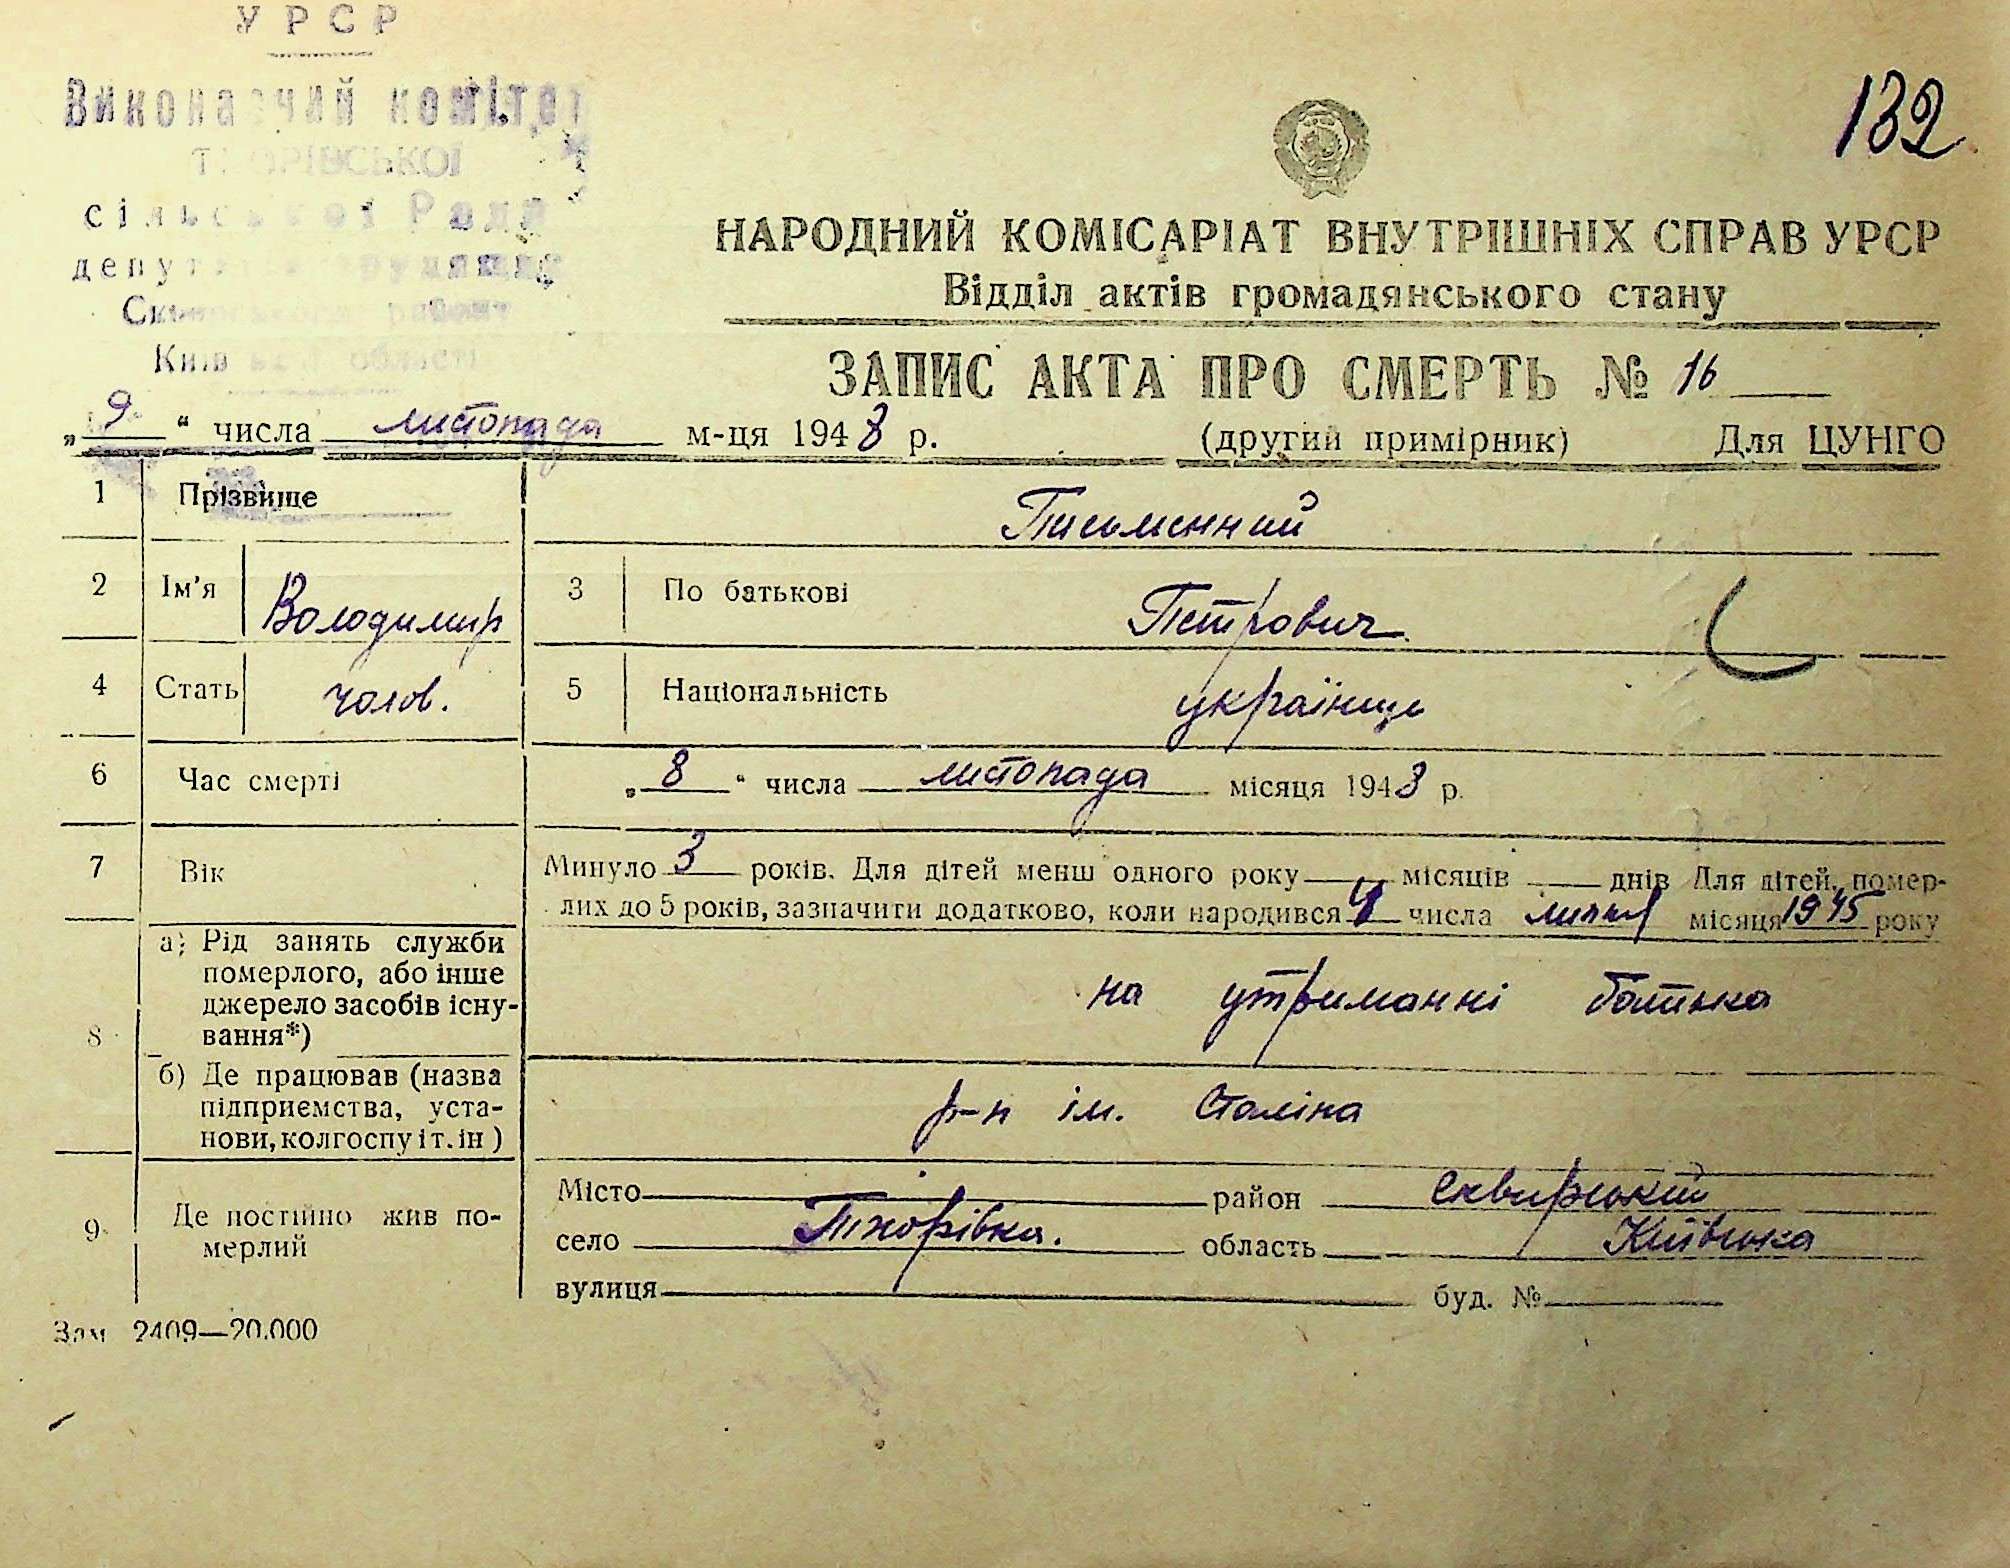 УРСР
Виконавчий комітет
ТХОРІВСЬКОЇ
сільської Ради
депутатів трудящих
Сквирського району
Київської області
132
НАРОДНИЙ КОМІСАРІАТ ВНУТРІШНІХ СПРАВ УРСР
Відділ актів громадянського стану
ЗАПИС АКТА ПРО СМЕРТЬ № 16
„9“ числа листопада м-ця 1948 р. (другий примірник) Для ЦУНГО
1 Прізвище Письменний
2 Ім'я Володимир 3 По батькові Петрович
4 Стать чолов. 5 Національність українець
6 Час смерті „8“ числа листопада місяця 1948 р.
7 Вік Минуло 3 років. Для дітей менш одного року місяців днів Для дітей, помер-
лих до 5 років, зазначити додатково, коли народився 4 числа липня місяця 1945 року
8 а) Рід занять служби
померлого, або інше
джерело засобів існу-
вання*) на утриманні батька
б) Де працював (назва
підприємства, уста-
нови, колгоспу і т. ін) р-н ім. Сталіна
9 Де постійно жив по-
мерлий
Місто район Сквирський
село Тхорівка. область Київська
вулиця буд. №
Зам 2409—20.000